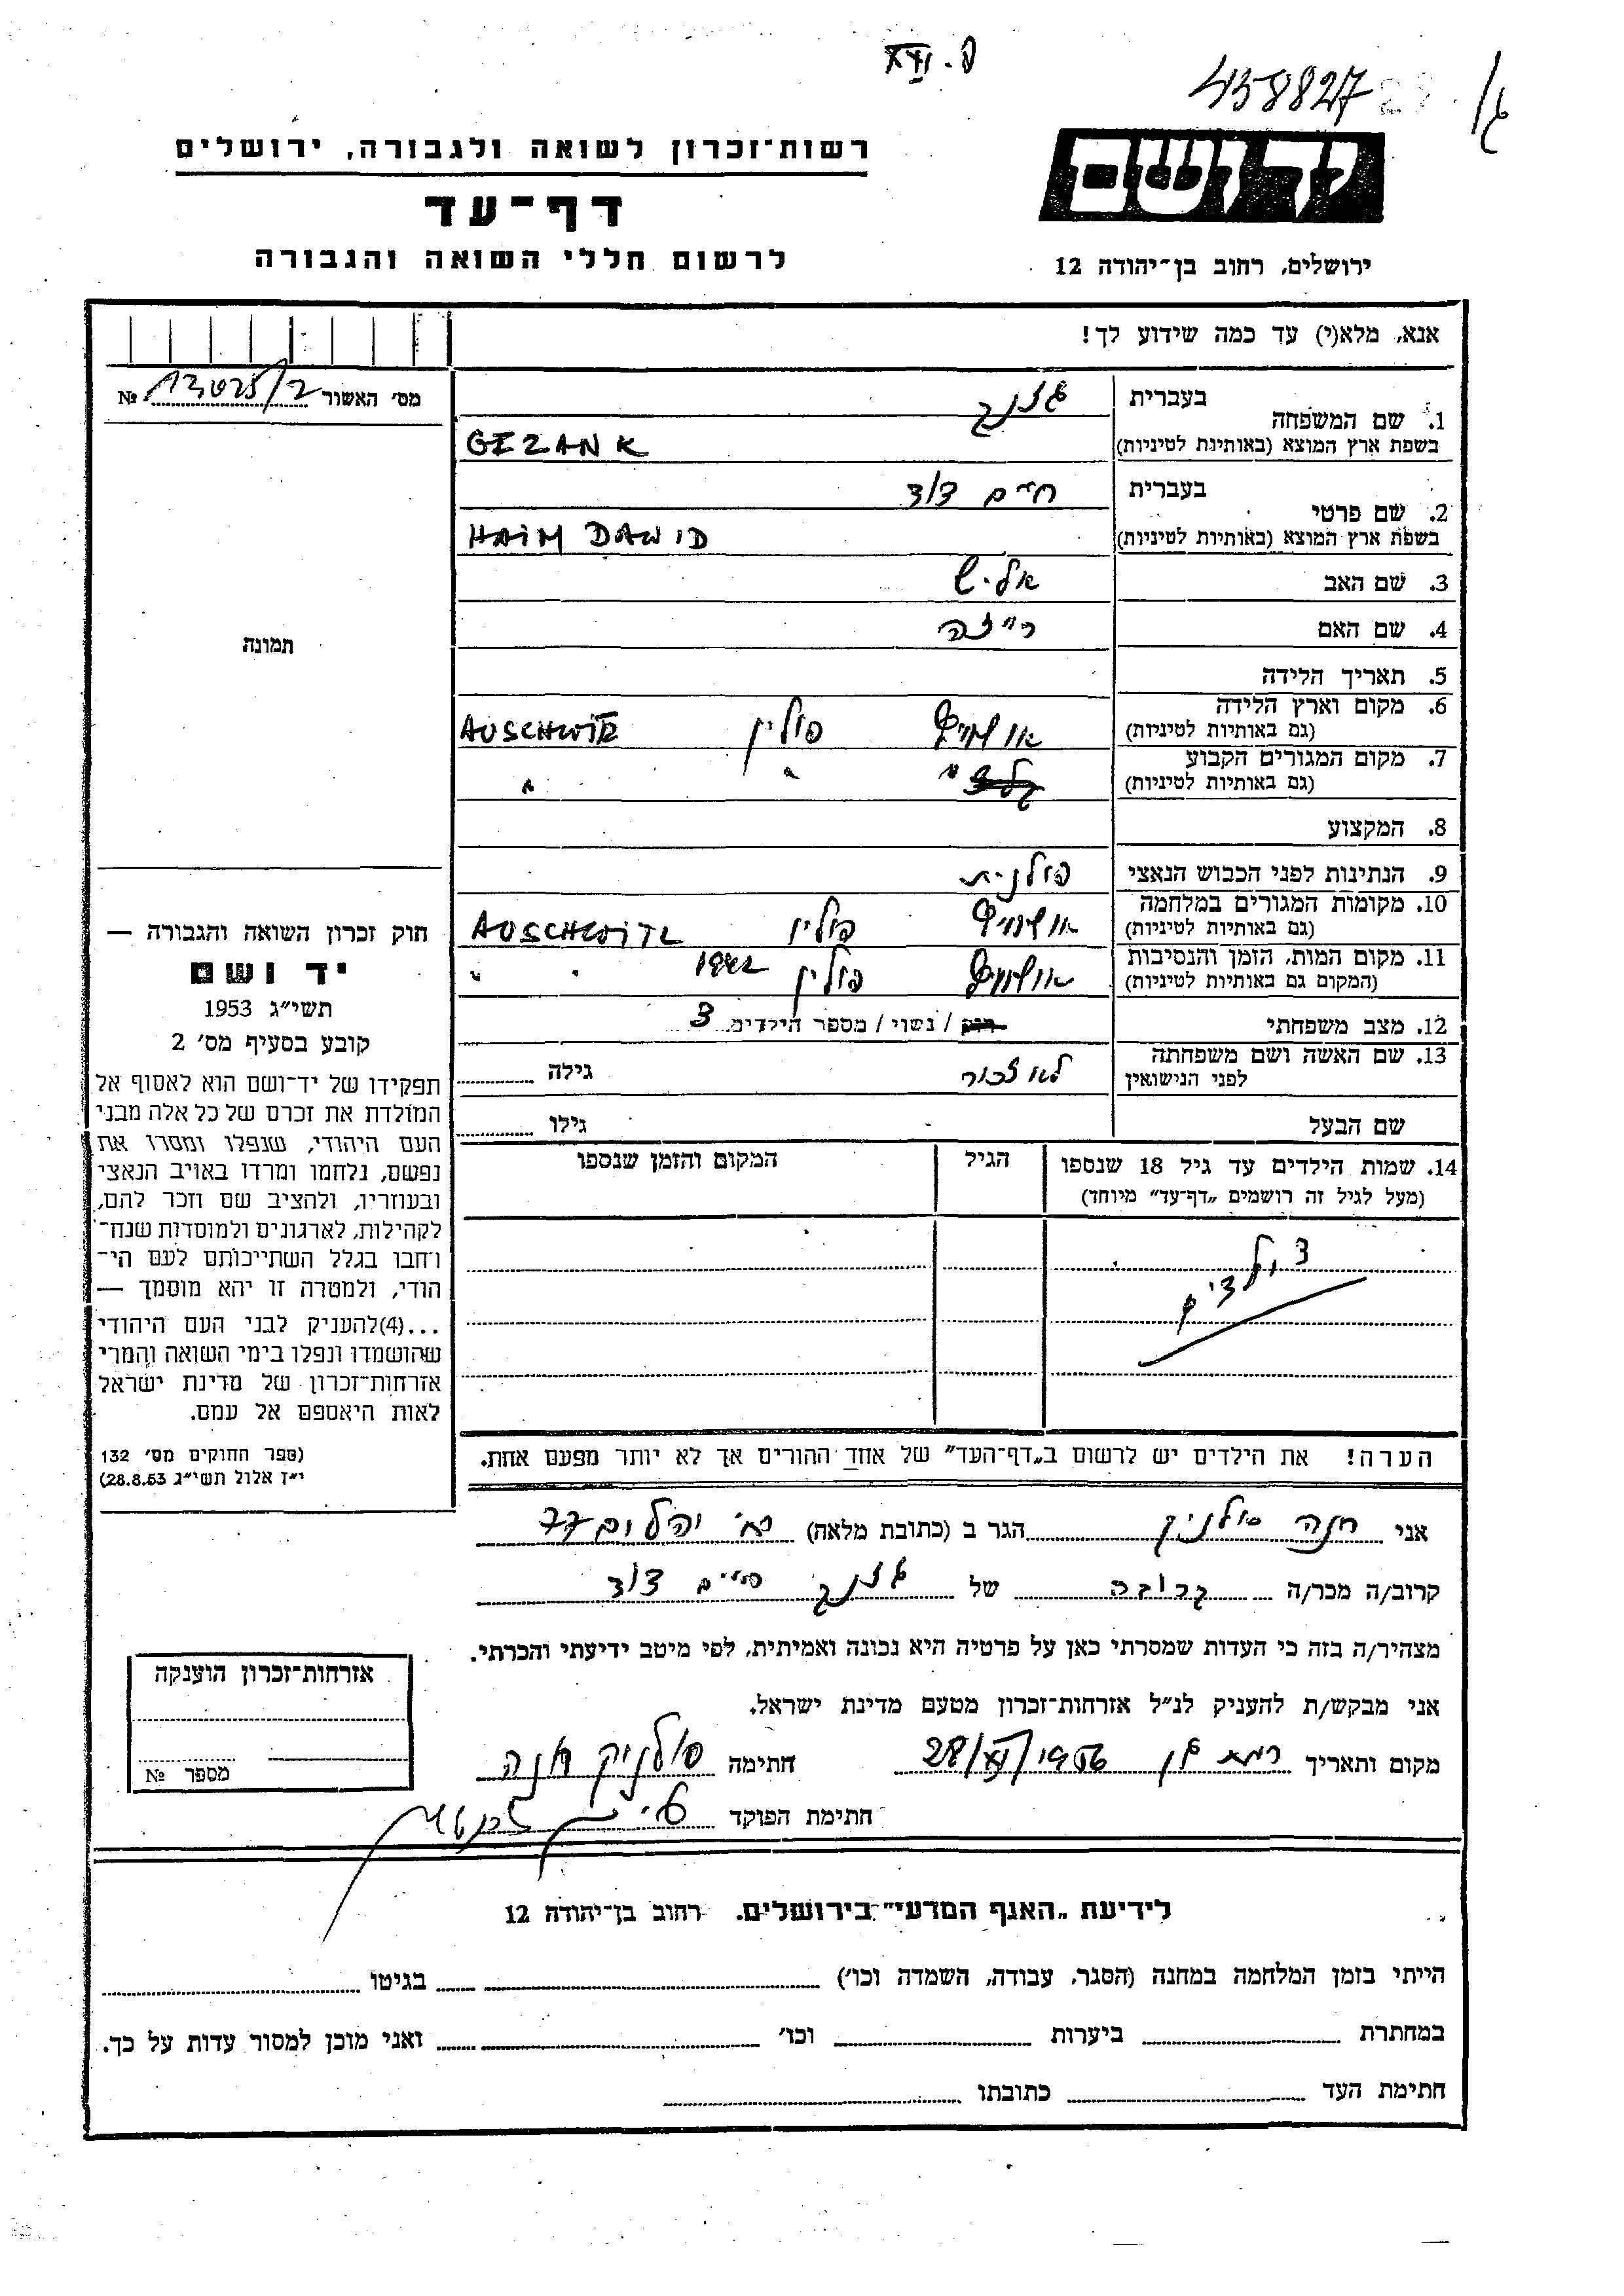 XVI.9
458827
ידושם
רשות־זכרון לשואה ולגבורה, ירושלים
דף־עד
לרשום חללי השואה והגבורה
ירושלים, רחוב בן־יהודה 12
אנא, מלא(י) עד כמה שידוע לך!
מס׳ האשור №
1. שם המשפחה
בעברית גזנק
בשפת ארץ המוצא (באותיות לטיניות) GEZANK
2. שם פרטי
בעברית חיים דוד
בשפת ארץ המוצא (באותיות לטיניות) HAIM DAWID
3. שם האב
4. שם האם רייזה
5. תאריך הלידה
6. מקום וארץ הלידה
(גם באותיות לטיניות) אושויץ פולין AUSCHWITZ
7. מקום המגורים הקבוע
(גם באותיות לטיניות) " " "
8. המקצוע
9. הנתינות לפני הכבוש הנאצי פולנית
10. מקומות המגורים במלחמה
(גם באותיות לטיניות) אושויץ פולין AUSCHWITZ
11. מקום המות, הזמן והנסיבות
(המקום גם באותיות לטיניות) אושויץ פולין 1942 " "
12. מצב משפחתי רווק / נשוי / מספר הילדים 3
13. שם האשה ושם משפחתה
לפני הנישואין לא זכור גילה
שם הבעל גילו
14. שמות הילדים עד גיל 18 שנספו
(מעל לגיל זה רושמים „דף־עד” מיוחד)
הגיל
המקום והזמן שנספו
3 ילדים
הערה! את הילדים יש לרשום ב„דף־העד” של אחד ההורים אך לא יותר מפעם אחת.
תמונה
חוק זכרון השואה והגבורה —
יד ושם
תשי״ג 1953
קובע בסעיף מס׳ 2
תפקידו של יד־ושם הוא לאסוף אל
המולדת את זכרם של כל אלה מבני
העם היהודי, שנפלו ומסרו את
נפשם, נלחמו ומרדו באויב הנאצי
ובעוזריו, ולהציב שם וזכר להם,
לקהילות, לארגונים ולמוסדות שנח־
רבו בגלל השתייכותם לעם הי־
הודי, ולמטרה זו יהא מוסמך —
...(4) להעניק לבני העם היהודי
שהושמדו ונפלו בימי השואה והמרי
אזרחות־זכרון של מדינת ישראל
לאות היאספם אל עמם.
(ספר החוקים מס׳ 132
י״ז אלול תשי״ג 28.8.53)
אני חנה סולניק הגר ב (כתובת מלאה) יהלום 77
קרוב/ה מכר/ה קרובה של גזנק חיים דוד
מצהיר/ה בזה כי העדות שמסרתי כאן על פרטיה היא נכונה ואמיתית, לפי מיטב ידיעתי והכרתי.
אני מבקש/ת להעניק לנ״ל אזרחות־זכרון מטעם מדינת ישראל.
מקום ותאריך רמת גן 28/XI/1956 חתימה סולניק חנה
חתימת הפוקד
אזרחות־זכרון הוענקה
מספר №
לידיעת „האגף המדעי” בירושלים. רחוב בן־יהודה 12
הייתי בזמן המלחמה במחנה (הסגר, עבודה, השמדה וכו׳) בגיטו
במחתרת ביערות וכו׳ ואני מוכן למסור עדות על כך.
חתימת העד כתובתו